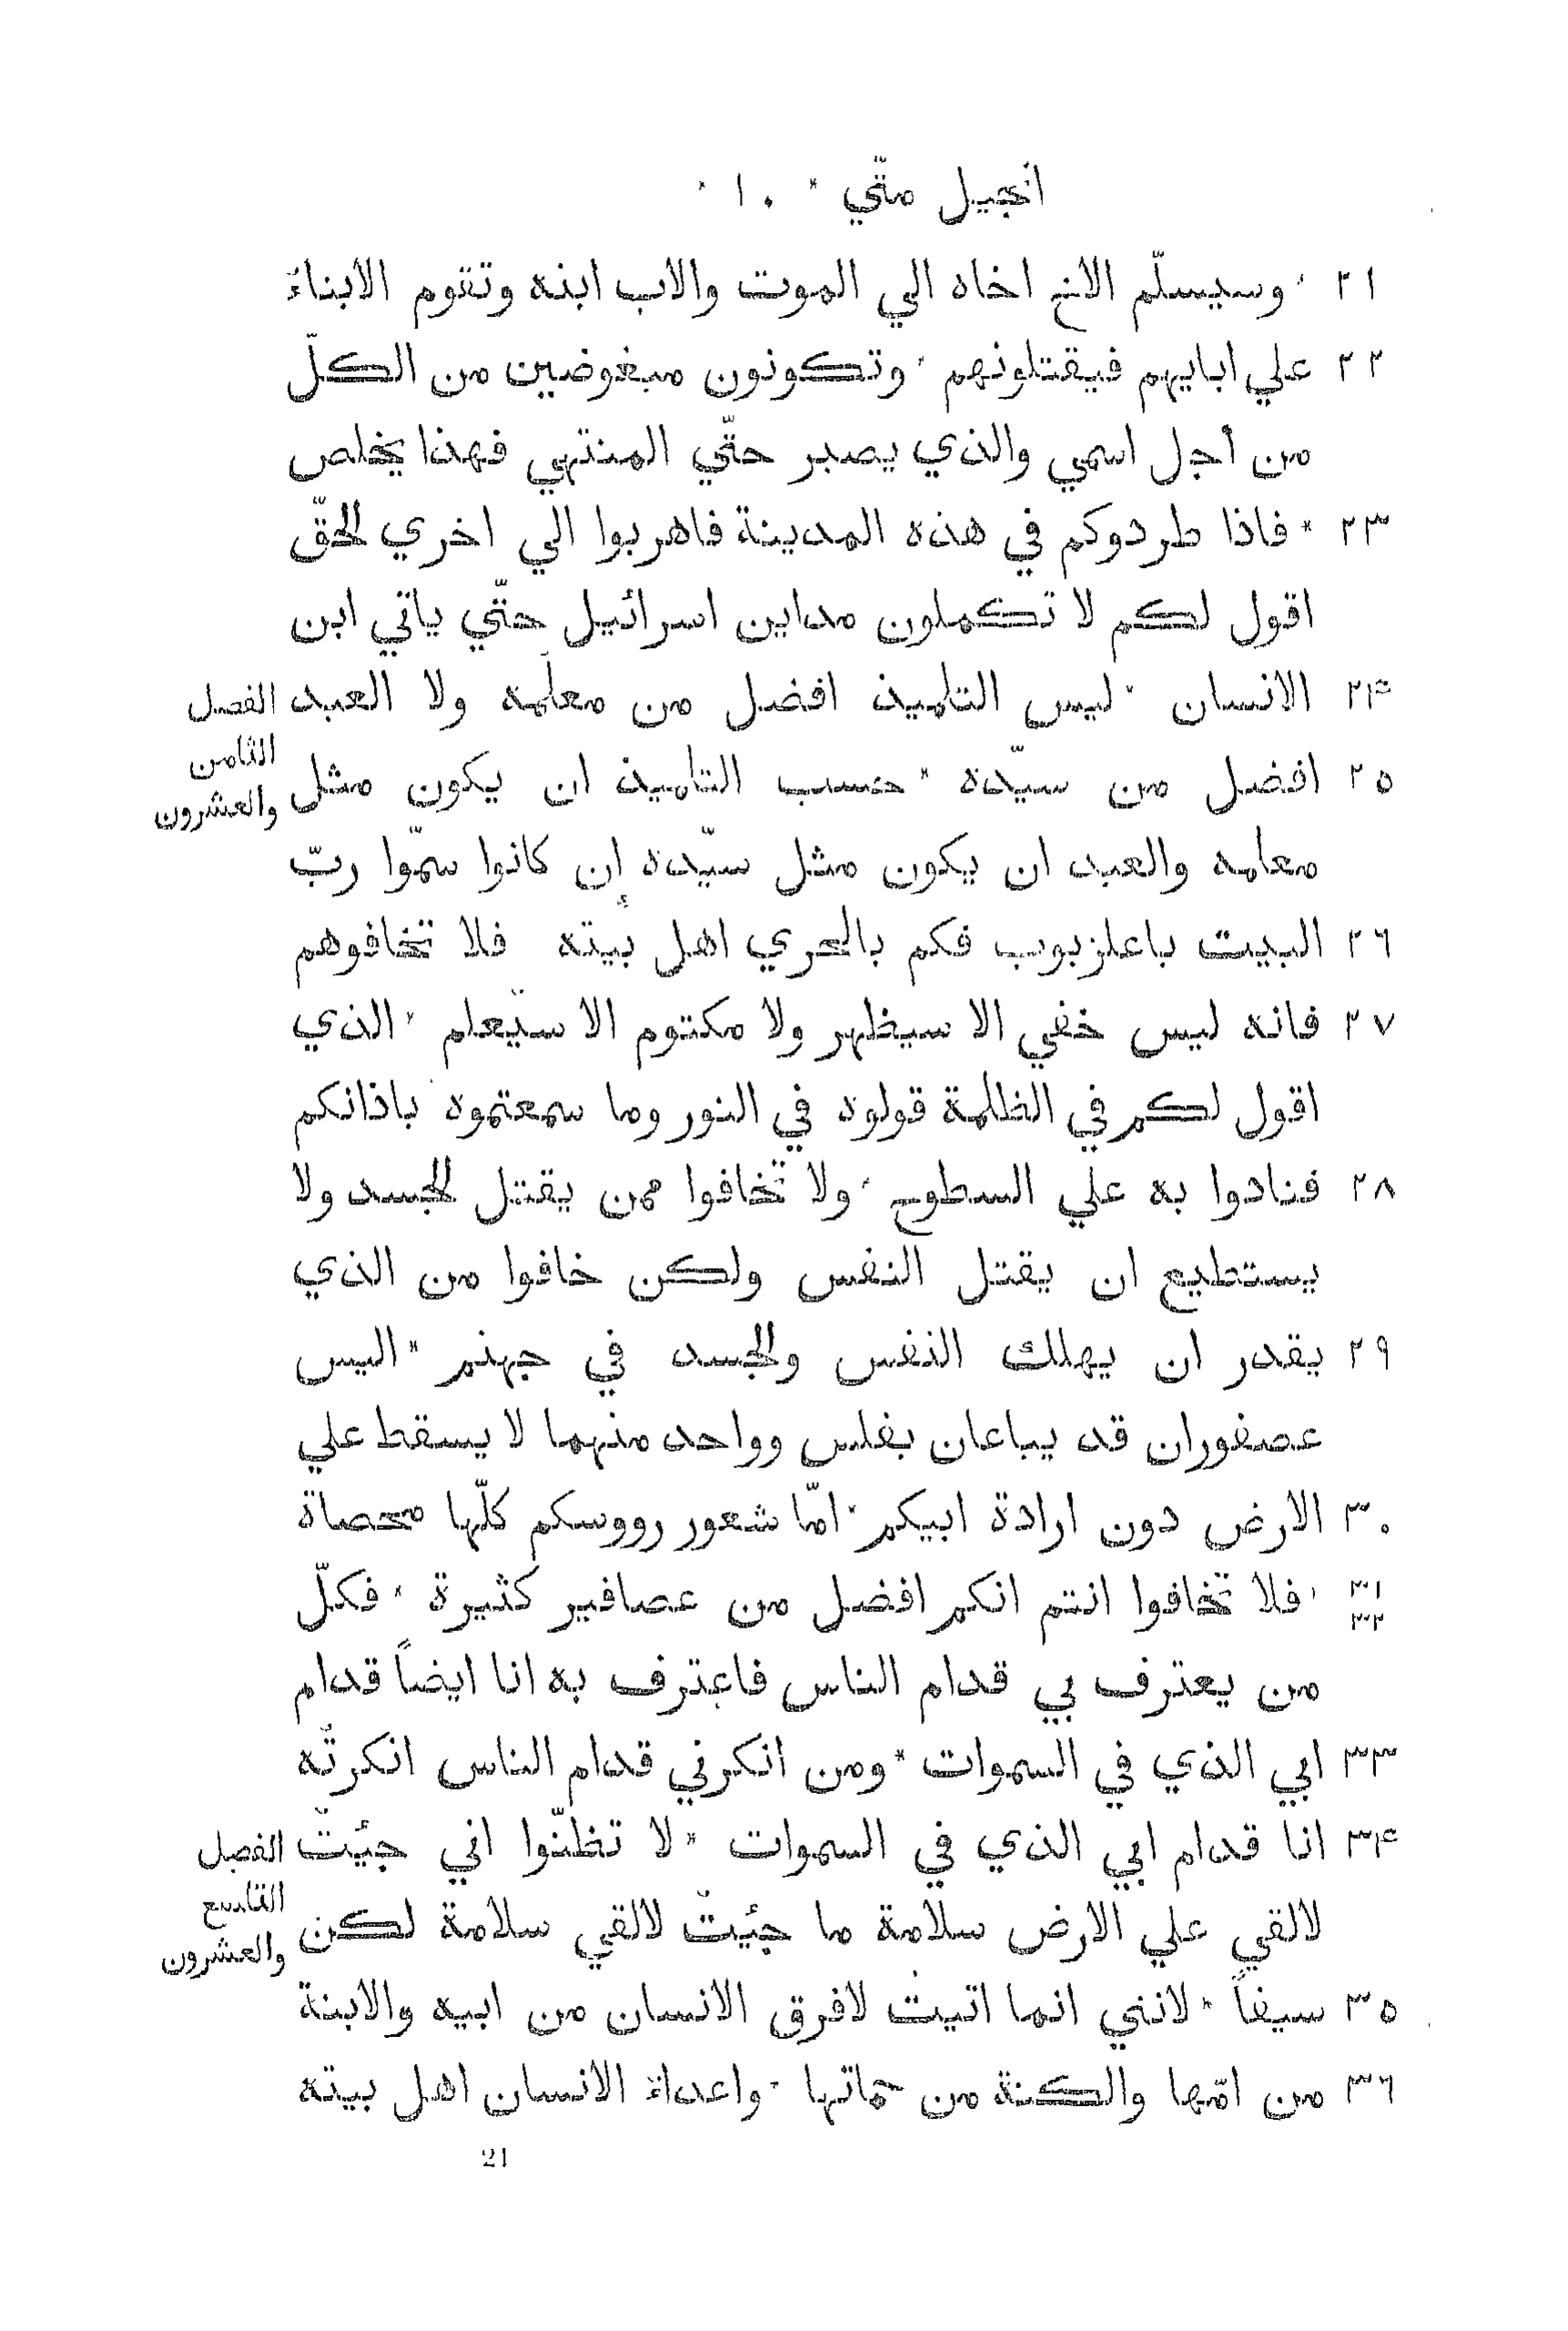 انجيل متّي * ١٠ *
٢١ * وسيسلّم الاخ اخاه الي الموت والاب ابنه وتقوم الابناءُ
٢٢ علي ابايهم فيقتلونهم * وتكونون مبغوضين من الكلّ
من أجل اسمي والذي يصبر حتّي المنتهي فهذا يخلص
٢٣ * فاذا طردوكم في هذه المدينة فاهربوا الي اخري الحقّ
اقول لكم لا تكملون مداين اسرائيل حتّي ياتي ابن
٢٤ الانسان * ليس التلميذ افضل من معلّمه ولا العبد
الفصل
الثامن
والعشرون
٢٥ افضل من سيّده * حسب التلميذ ان يكون مثل
معلمه والعبد ان يكون مثل سيّده إن كانوا سمّوا ربّ
٢٦ البيت باعلزبوب فكم بالحري اهل بيته فلا تخافوهم
٢٧ فانه ليس خفي الا سيظهر ولا مكتوم الا سيعلم * الذي
اقول لكم في الظلمة قولوه في النور وما سمعتموه باذانكم
٢٨ فنادوا به علي السطوح * ولا تخافوا ممن يقتل الجسد ولا
يستطيع ان يقتل النفس ولكن خافوا من الذي
٢٩ يقدر ان يهلك النفس والجسد في جهنم * اليس
عصفوران قد يباعان بفلس وواحد منهما لا يسقط علي
٣٠ الارض دون ارادة ابيكم * امّا شعور رووسكم كلّها محصاة
٣١ * فلا تخافوا انتم انكم افضل من عصافير كثيرة * فكلّ
٣٢
من يعترف بي قدام الناس فاعترف به انا ايضاً قدام
٣٣ ابي الذي في السموات * ومن انكرني قدام الناس انكرتُه
٣٤ انا قدام ابي الذي في السموات * لا تظنّوا اني جيئتُ
الفصل
التاسع
والعشرون
لالقي علي الارض سلامة ما جيئتُ لالقي سلامة لكن
٣٥ سيفاً * لانني انما اتيتُ لافرق الانسان من ابيه والابنة
٣٦ من امّها والكنة من حماتها * واعداءُ الانسان اهل بيته
21